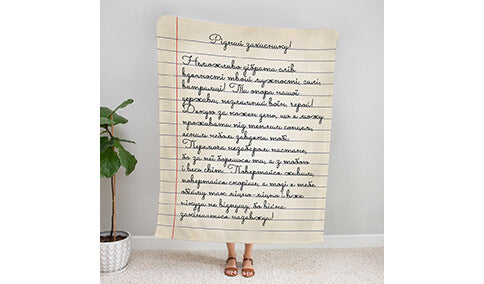 Рідний захиснику!
Неможливо дібрати слів
вдячності твоїй мужності, силі,
витримці! Ти опора нашої
держави, незламний воїн, герой!
Дякую за кожен день, що я можу
прокидатися під теплим сонцем,
ясним небом завдяки тобі.
Перемога незабаром настане,
бо за неї борешся ти, а з тобою
і весь світ. Повертайся живим,
повертайся скоріше, а тоді я тебе
обійму так міцно-міцно і вже
нікуди не відпущу, бо війна
закінчиться назавжди!